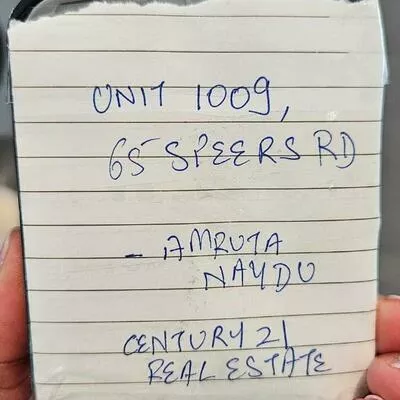 UNIT 1009,
65 SPEERS RD
- AMRUTA
NAYDU
CENTURY 21
REAL ESTATE